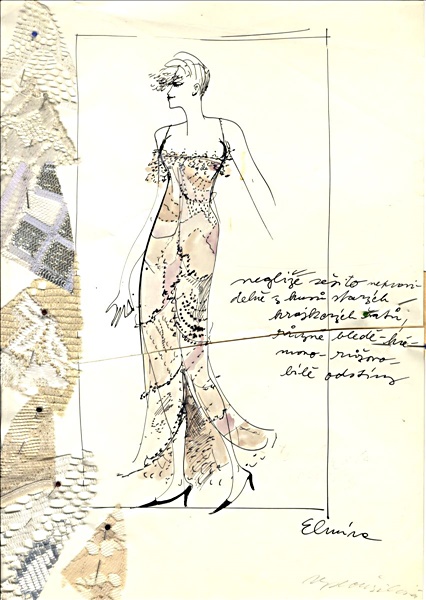 negližé sešito nepravi
delně z kusů starých
krajkových šatů,
různě bledě-kré-
mono-růžovo-
bílé odstíny
Elmíra